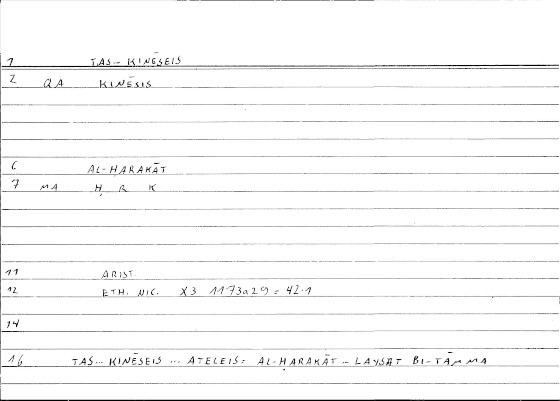 1 TAS- KINĒSEIS
2 QA KINĒSIS
6 AL-ḤARAKĀT
7 MA Ḥ R K
11 ARIST.
12 ETH. NIC. X3 1173a29 = 42.1
14
16 TAS... KINĒSEIS ... ATELEIS: AL-ḤARAKĀT... LAYSAT BI-TĀMMA